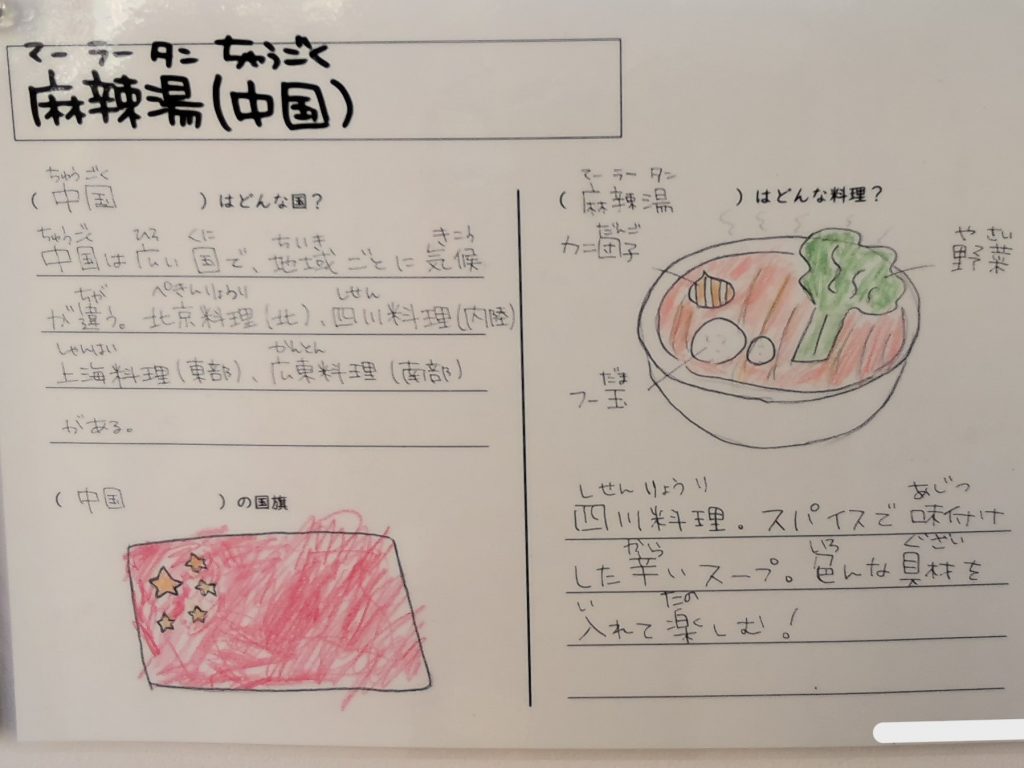 マーラータン ちゅうごく
麻辣湯(中国)
ちゅうごく
(中国)はどんな国?
ちゅうごく ひろ くに ちいき きこう
中国は広い国で、地域ごとに気候
ちが ぺきんりょうり しせん
が違う。北京料理(北)、四川料理(内陸)
しゃんはい かんとん
上海料理(東部)、広東料理(南部)
がある。
(中国)の国旗
マーラータン
(麻辣湯)はどんな料理?
だんご
カニ団子
やさい
野菜
だま
フー玉
しせんりょうり あじつ
四川料理。スパイスで味付け
から いろ ぐざい
した辛いスープ。色んな具材を
い たの
入れて楽しむ!